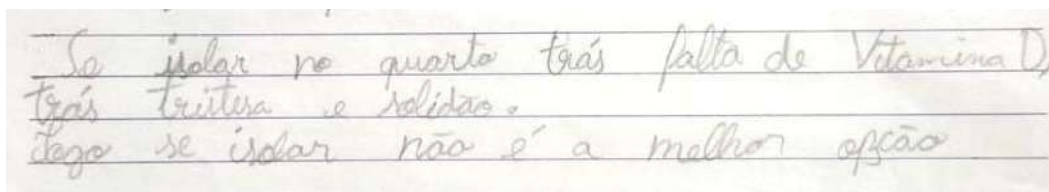 Se isolar no quarto trás falta de Vitamina D,
trás tristesa e solidão.
Logo se isolar não é a melhor opção